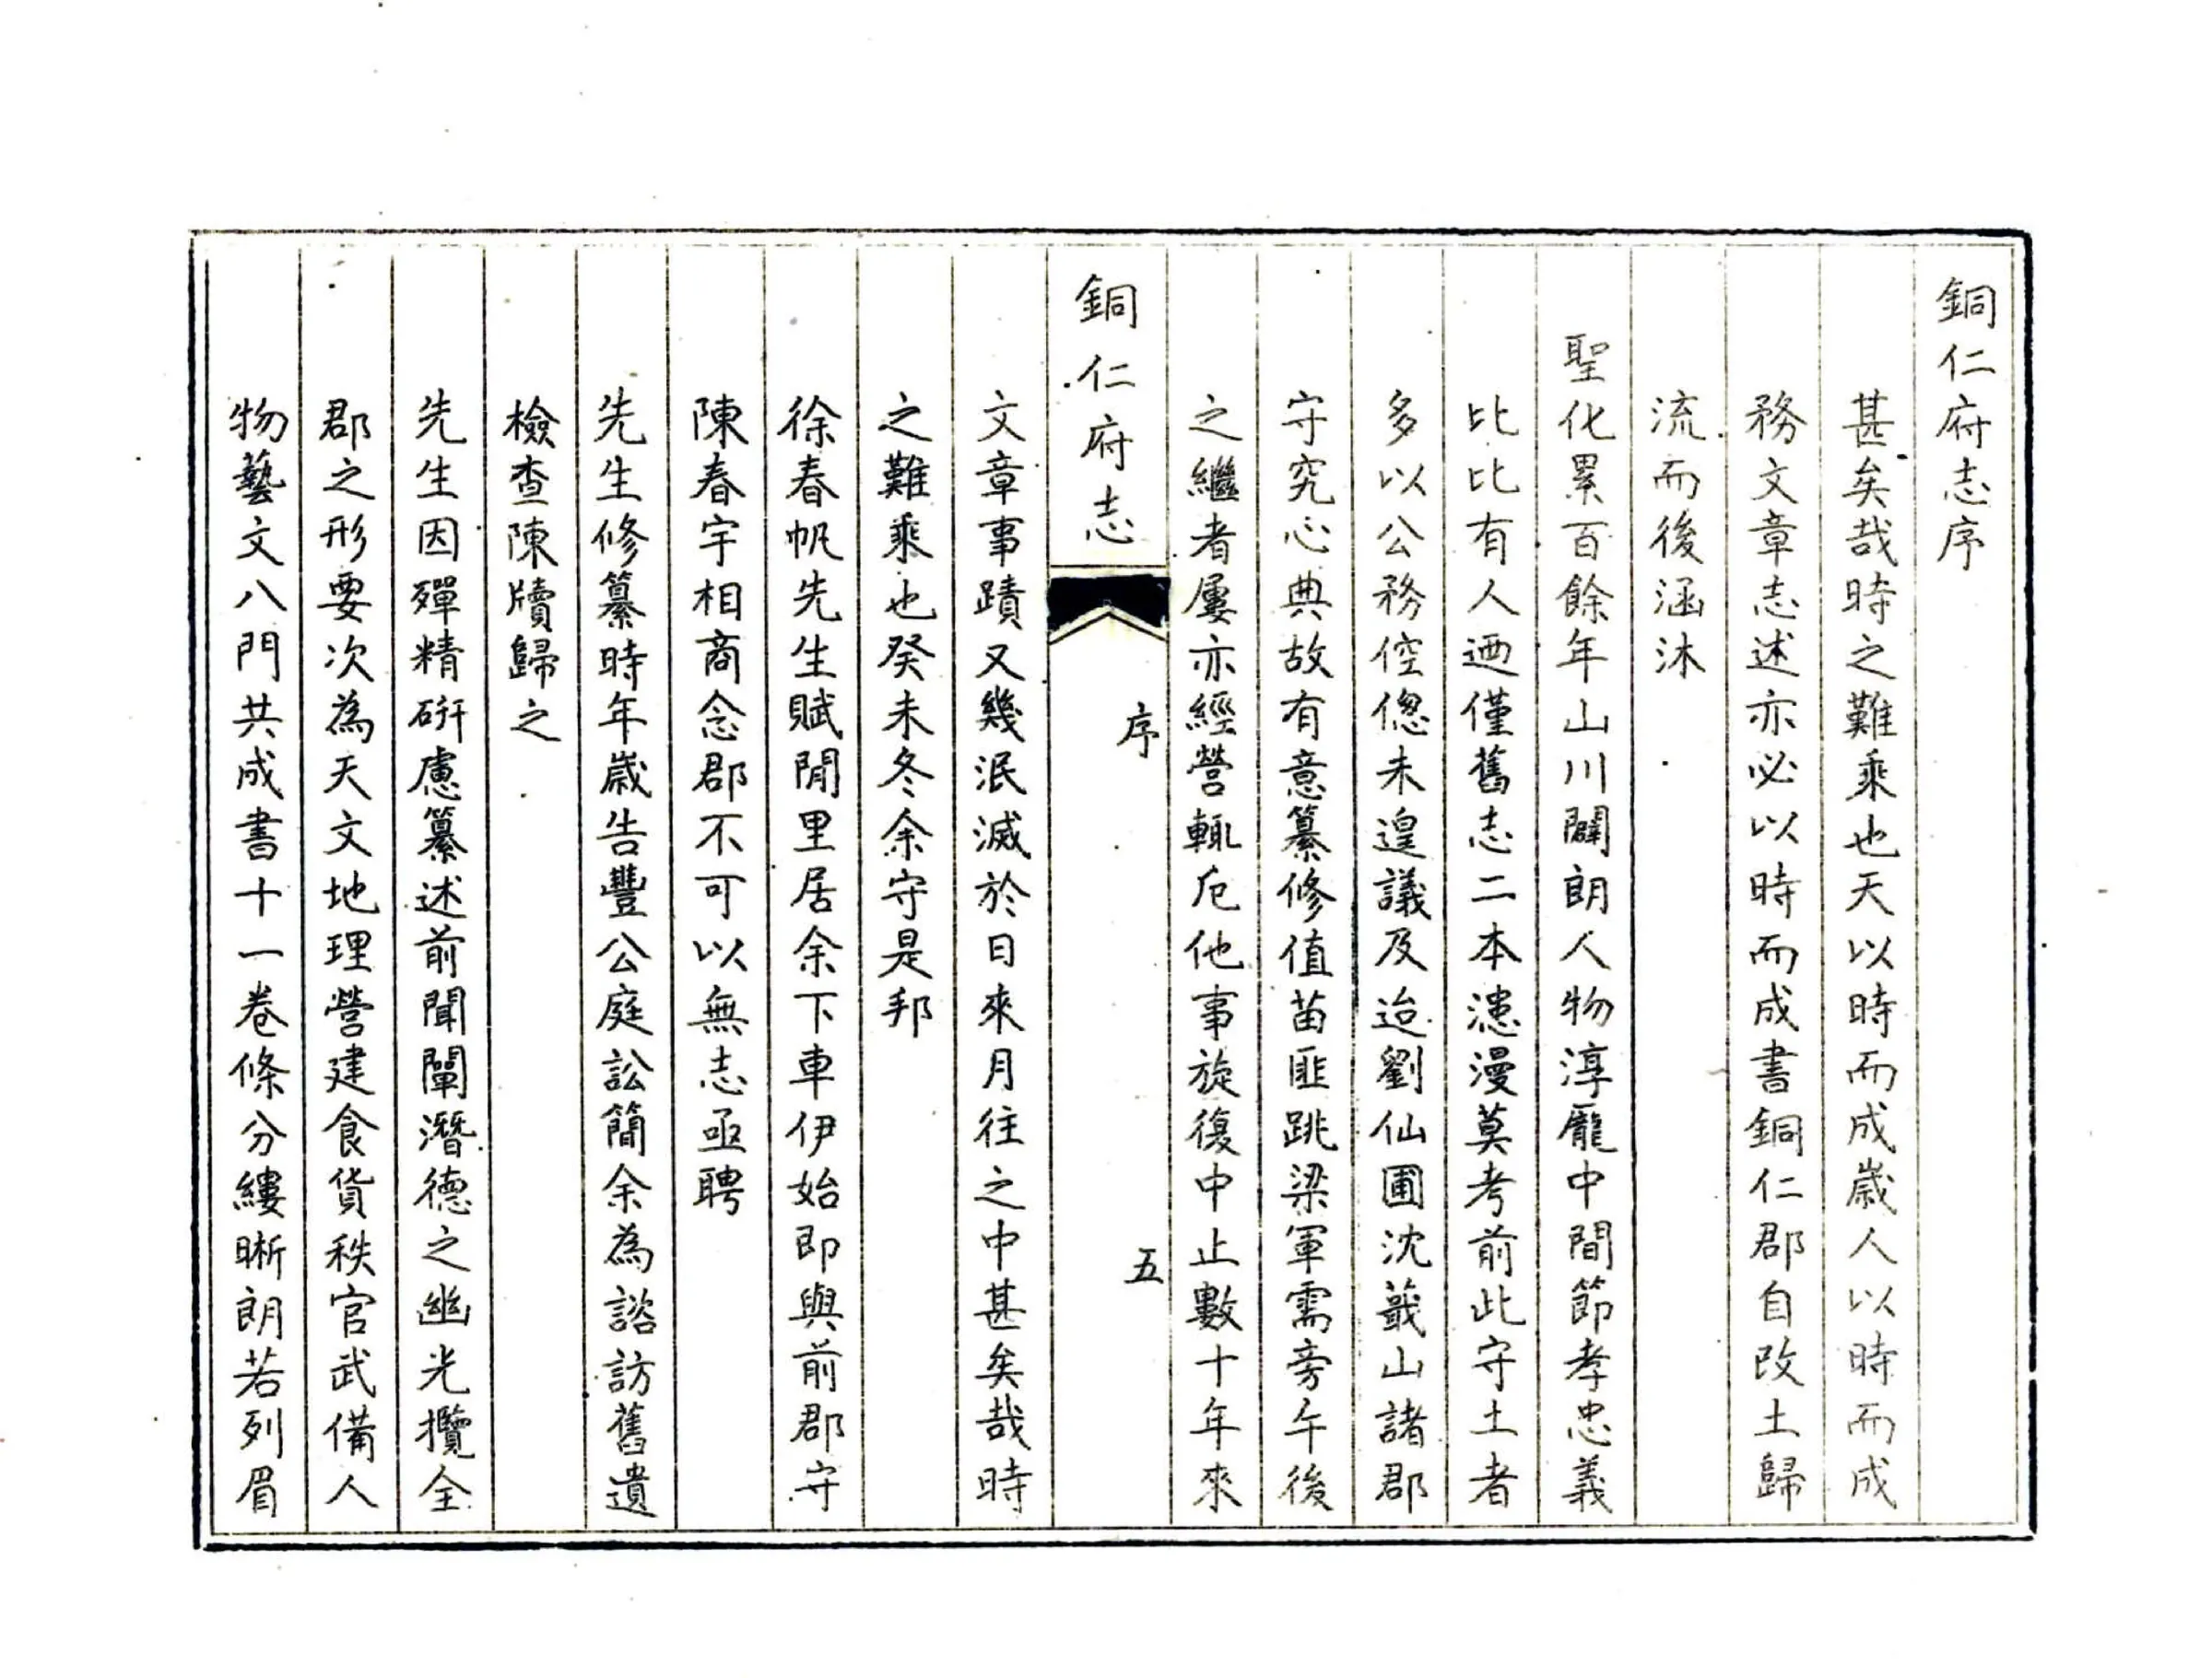 銅仁府志序
甚矣哉時之難乘也天以時而成歲人以時而成
務文章志述亦必以時而成書銅仁郡自改土歸
流而後涵沐
聖化累百餘年山川闢朗人物淳龐中間節孝忠義
比比有人迺僅舊志二本漶漫莫考前此守土者
多以公務倥傯未遑議及迨劉仙圃沈蕺山諸郡
守究心典故有意纂修值苗匪跳梁軍需旁午後
之繼者屢亦經營輒卮他事旋復中止數十年來
銅仁府志
序
五
文章事蹟又幾泯滅於日來月往之中甚矣哉時
之難乘也癸未冬余守是邦
徐春帆先生賦閒里居余下車伊始即與前郡守
陳春宇相商念郡不可以無志亟聘
先生修纂時年歲告豐公庭訟簡余為諮訪舊遺
檢查陳牘歸之
先生因殫精研慮纂述前聞闡潛德之幽光攬全
郡之形要次為天文地理營建食貨秩官武備人
物藝文八門共成書十一卷條分縷晰朗若列眉